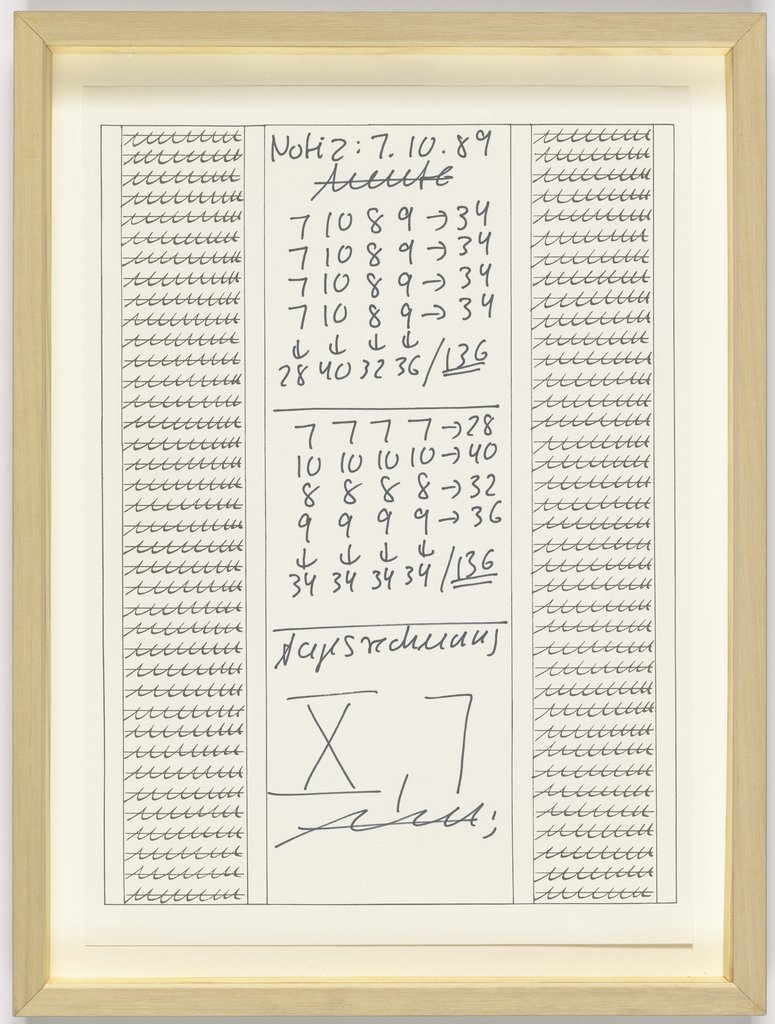 Notiz: 7. 10. 89
heute
7 10 8 9 → 34
7 10 8 9 → 34
7 10 8 9 → 34
7 10 8 9 → 34
↓ ↓ ↓ ↓
28 40 32 36 / 136
7 7 7 7 → 28
10 10 10 10 → 40
8 8 8 8 → 32
9 9 9 9 → 36
↓ ↓ ↓ ↓
34 34 34 34 / 136
Tagesrechnung
X, 7